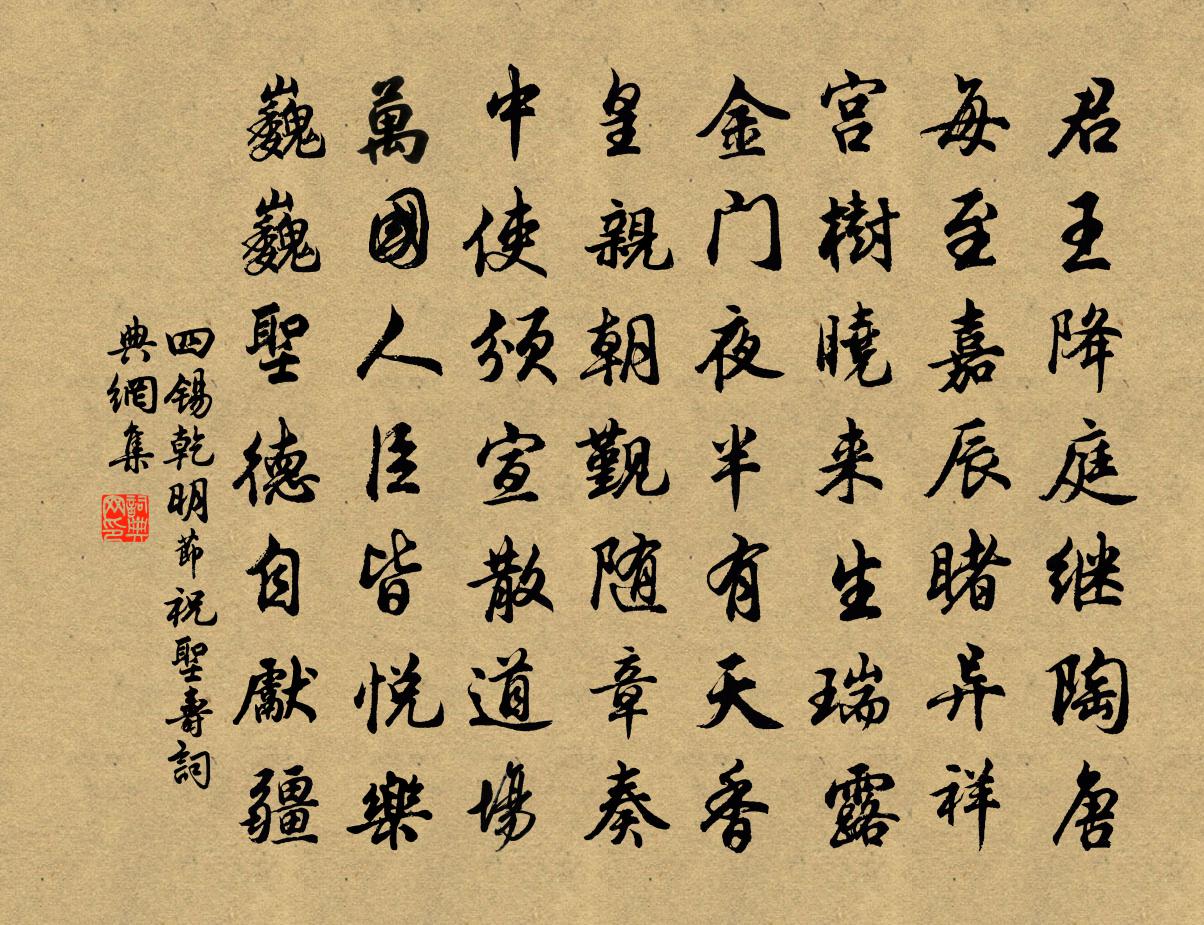 君王降庭继陶唐
每至嘉辰睹异祥
宫樹曉来生瑞露
金门夜半有天香
皇親朝覲随章奏
中使颁宣散道場
萬國人臣皆悦樂
巍巍聖德自獻疆
四锡乾明節祝聖壽詞
典網集
詞典网印